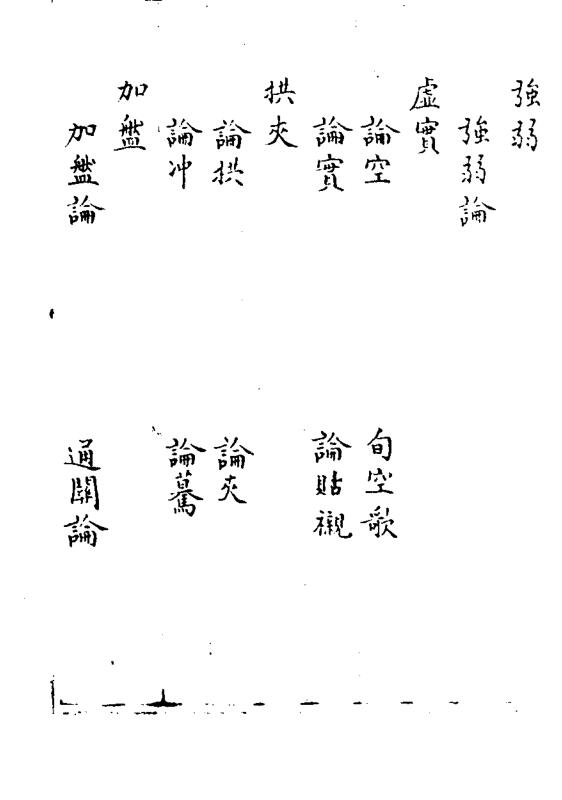 強弱
強弱論
虛實
論空 旬空歌
論實 論貼襯
拱夾
論拱 論夾
論冲 論驀
加盤
加盤論 通關論